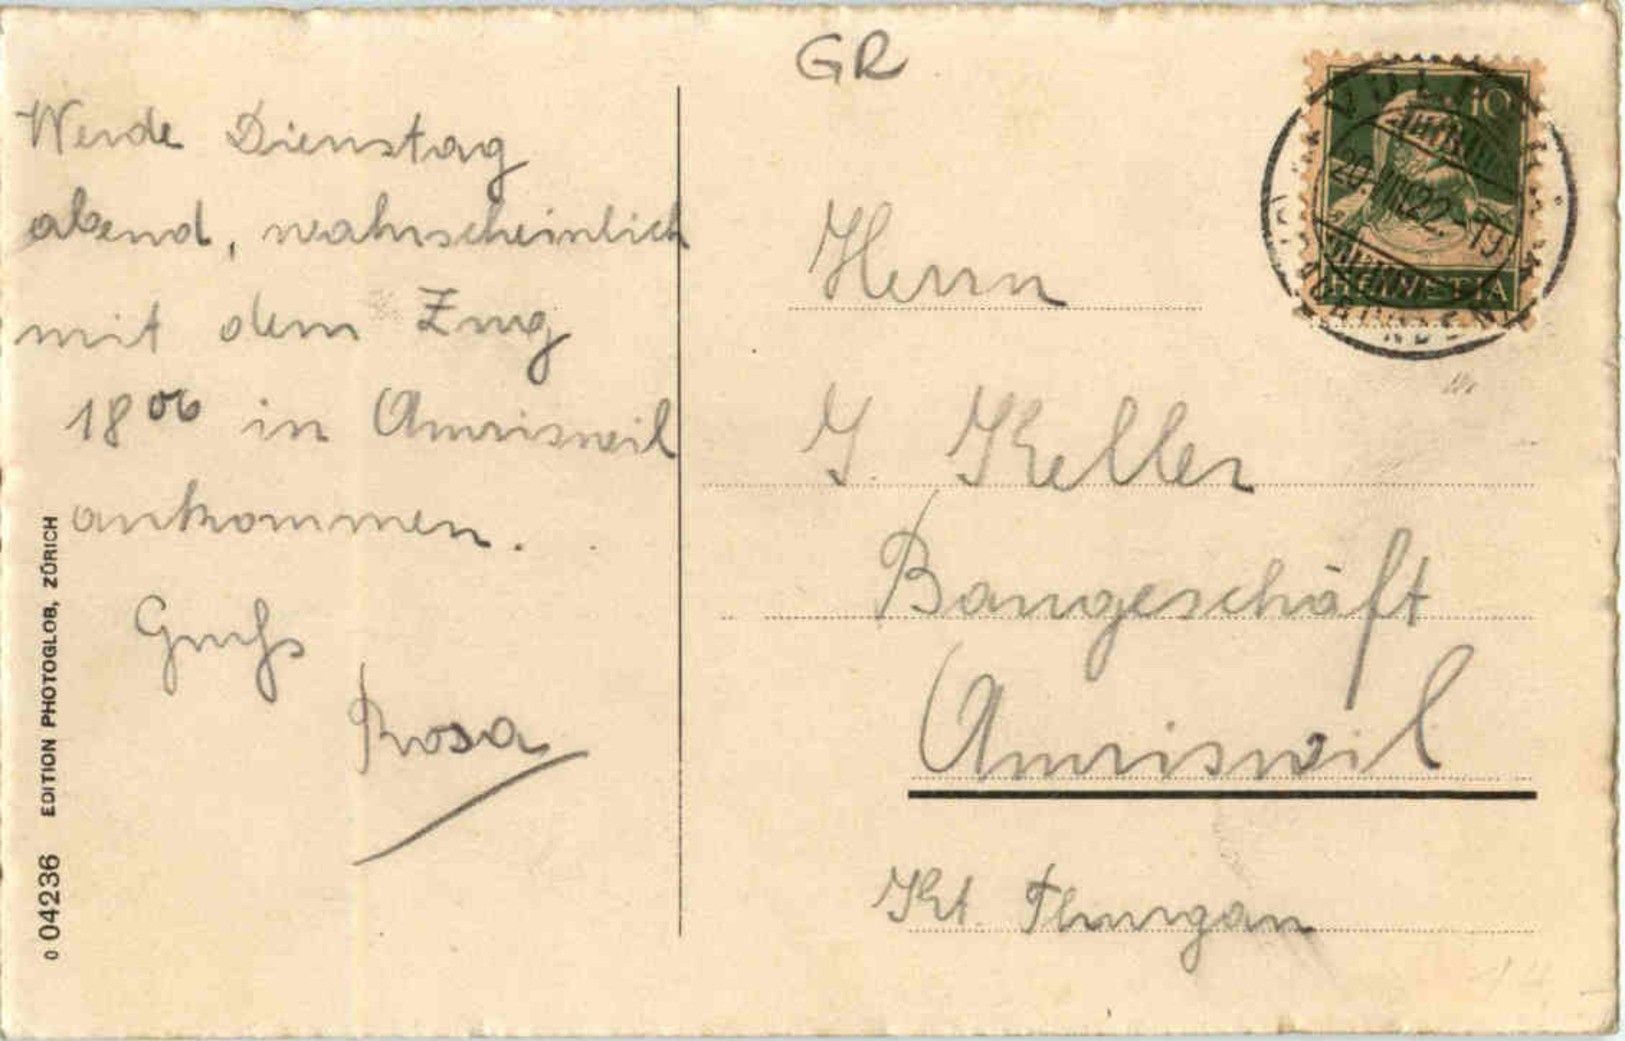 GR
Werde Dienstag
abend, wahrscheinlich
mit dem Zug
18⁰⁶ in Amriswil
ankommen.
Gruss
Rosa
Herrn
J. Keller
Baugeschäft
Amriswil
Kt. Thurgau
10
HELVETIA
20.VIII.22.-19
0 04236 EDITION PHOTOGLOB, ZÜRICH